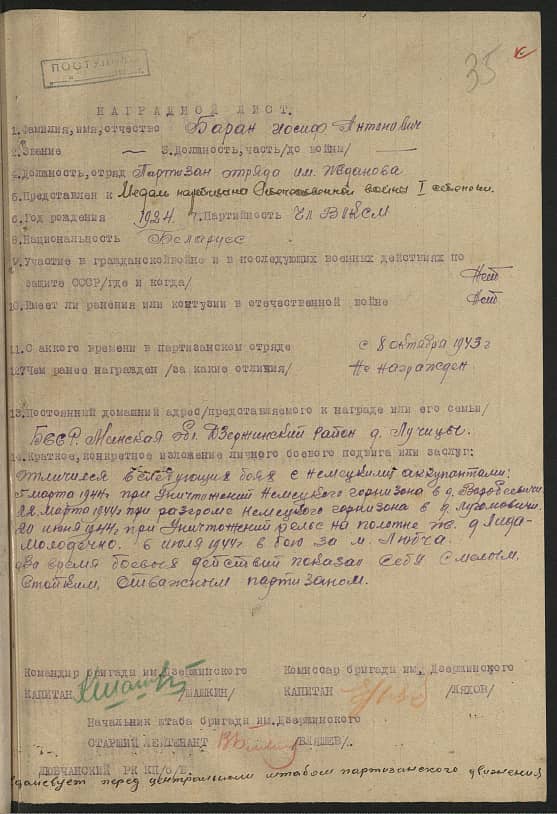 ПОСТУПИЛ
35 к
НАГРАДНОЙ ЛИСТ.
1.Фамилия,имя,отчество Баран Иосиф Антонович
2.Звание — 3.Должность,часть/до войны/ —
4.Должность,отряд Партизан отряда им. Жданова
5.Представлен к Медал партизана Отечественной войны I степени.
6.Год рождения 1924. 7.Партийность Чл ВЛКСМ
8.Национальность Беларусс
9.Участие в гражданскойвойне и в последующих военных действиях по
защите СССР/где и когда/ Нет
10.Имеет ли ранения или контузии в отечественной войне Нет
11.С аккого времени в партизанском отряде с 8 октября 1943 г
12.Чем ранее награжден /за какие отличия/ Не награжден
13.Постоянный домашний адрес/представляемого к награде или его семьи/
БССР. Минская обл. Дзержинский район д. Лучицы.
14.Краткое,конкретное изложение личного боевого подвига или заслуг:
Отличился в следующих боях с немецкими аккупантами:
5 марта 1944г при уничтожений немецкого горнизона в д.
22 марта 1944г при разгроме немецкого горнизона в д.
20 июня 1944г, при уничтожений рельс на полотне ж.д Лида-
Молодечно. 6 июля 1944г в бою за м. Любча.
Во время боевых действий показал себя смелым,
стойким, отважным партизаном.
Командир бригады им.Дзержинского Комиссар бригады им. Дзержинского
КАПИТАН /ШАШКИН/ КАПИТАН /ЛЯХОВ/
Начальник штаба бригады им.Дзержинского
СТАРШИЙ ЛЕЙТЕНАНТ /ВЛЯШЕВ/.
ЛЮБЧАНСКИЙ РК КП/б/Б.
перед центральным штабом партизанского движения